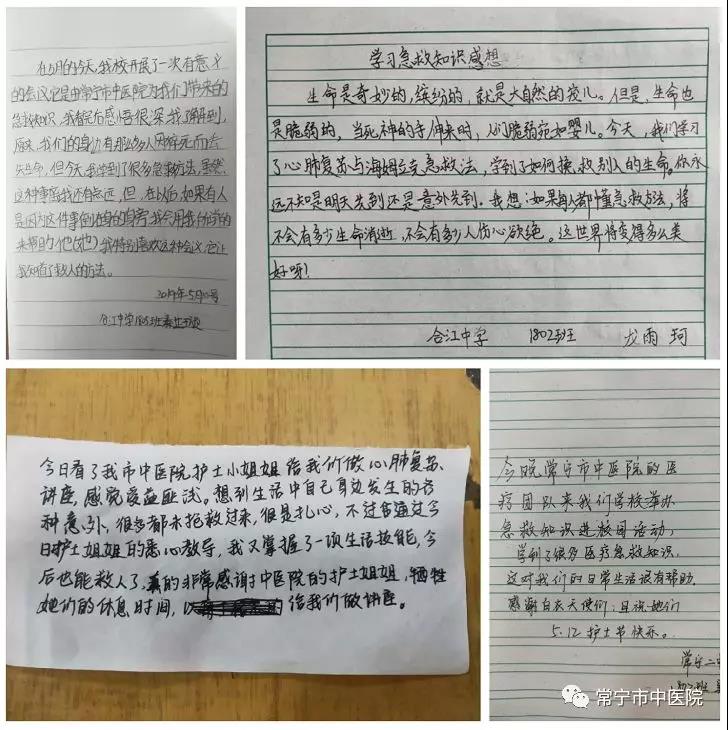 在5月的今天,我校开展了一次有意义
的会议,它是由常宁市中医院为我们带来的
急救知识,我看完后感悟很深,我了解到,
原来,我们的身边有那么多人因猝死而去
失生命,但今天,我学到了很多急救方法,虽然,
这种事离我还有点远,但,在以后,如果有人
是因为这件事倒在我的身旁,我会用我所学的
来帮助他(她),我特别喜欢这种会议,它让
我知道了救人的方法。
2019年5月10号
合江中学1805班
学习急救知识感想
生命是奇妙的,缤纷的,就是大自然的孩儿。但是,生命也
是脆弱的,当死神的手伸来时,人们脆弱宛如婴儿。今天,我们学习
了心肺复苏与海姆立克急救法,学到了如何挽救别人的生命。你永
远不知是明天先到还是意外先到。我想:如果每人都懂急救方法,将
不会有多少生命消逝,不会有多少人伤心欲绝。这世界将变得多么美
好呀!
合江中学 1802班 龙雨珂
今日看了我市中医院护士小姐姐给我们做心肺复苏
讲座,感觉受益匪浅。想到生活中自己身边发生的各
种意外,很多都未抢救过来,很是扎心,不过当通过今
日护士姐姐的悉心教导,我又掌握了一项生活技能,今
后也能救人了,真的非常感谢中医院的护士姐姐,牺牲
她们的休息时间,以 给我们做讲座。
今晚常宁市中医院的医
疗团队来我们学校举办
急救知识进校园活动,
学到了很多医疗急救知识,
这对我们的日常生活很有帮助,
感谢白衣天使们,且祝她们
5.12护士节快乐。
常宁二
班
常宁市中医院